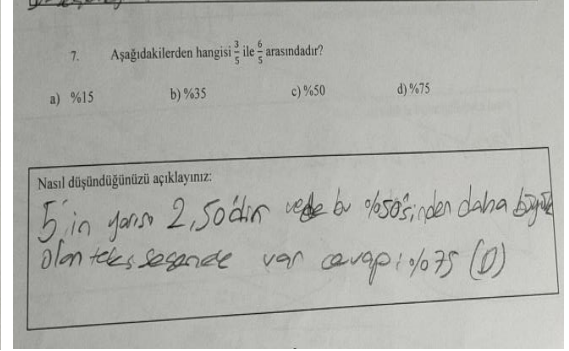 7. Aşağıdakilerden hangisi 3/5 ile 6/5 arasındadır?
a) %15 b) %35 c) %50 d) %75
Nasıl düşündüğünüzü açıklayınız:
5'in yarısı 2,50'dir vede bu %50'sinden daha büyük
olan tek seçenede var cevap: %75 (D)